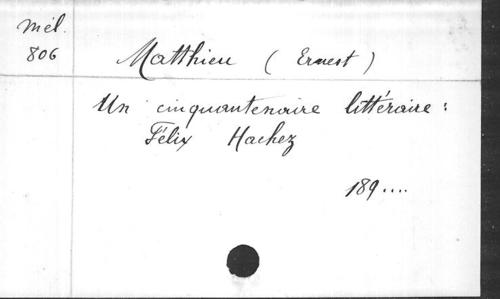 Mél.
806
Matthieu (Ernest)
Un cinquantenaire littéraire :
Félix Hachez
189....